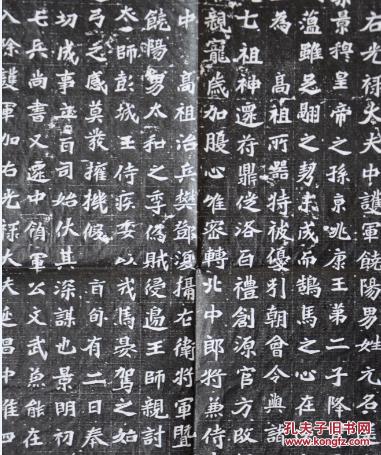 右光祿大夫中護軍饒陽男姓元
景穆皇帝之孫京兆康王第二子降
蘊雖足翮之勢未成而鵠馬之心在
為高祖所器特被優引朝會令與諸
祖神遷苻鼎徙洛百禮創源官方改
親寵歲加腹心唯密轉北中郎將兼侍
中高祖治兵樊鄧復攝右衛將軍暨
饒陽男太和之季偽賊侵邊王師親討
太師彭城王侍疾委以戎馬晏駕之始
弓之慼莫發擁機假言旬有二日秦
功成事立百司始伏其深謀也景明初
七兵尚書又遷中領軍公文武兼能在
入除護軍加右光祿大夫延昌中淮四
孔夫子旧书网